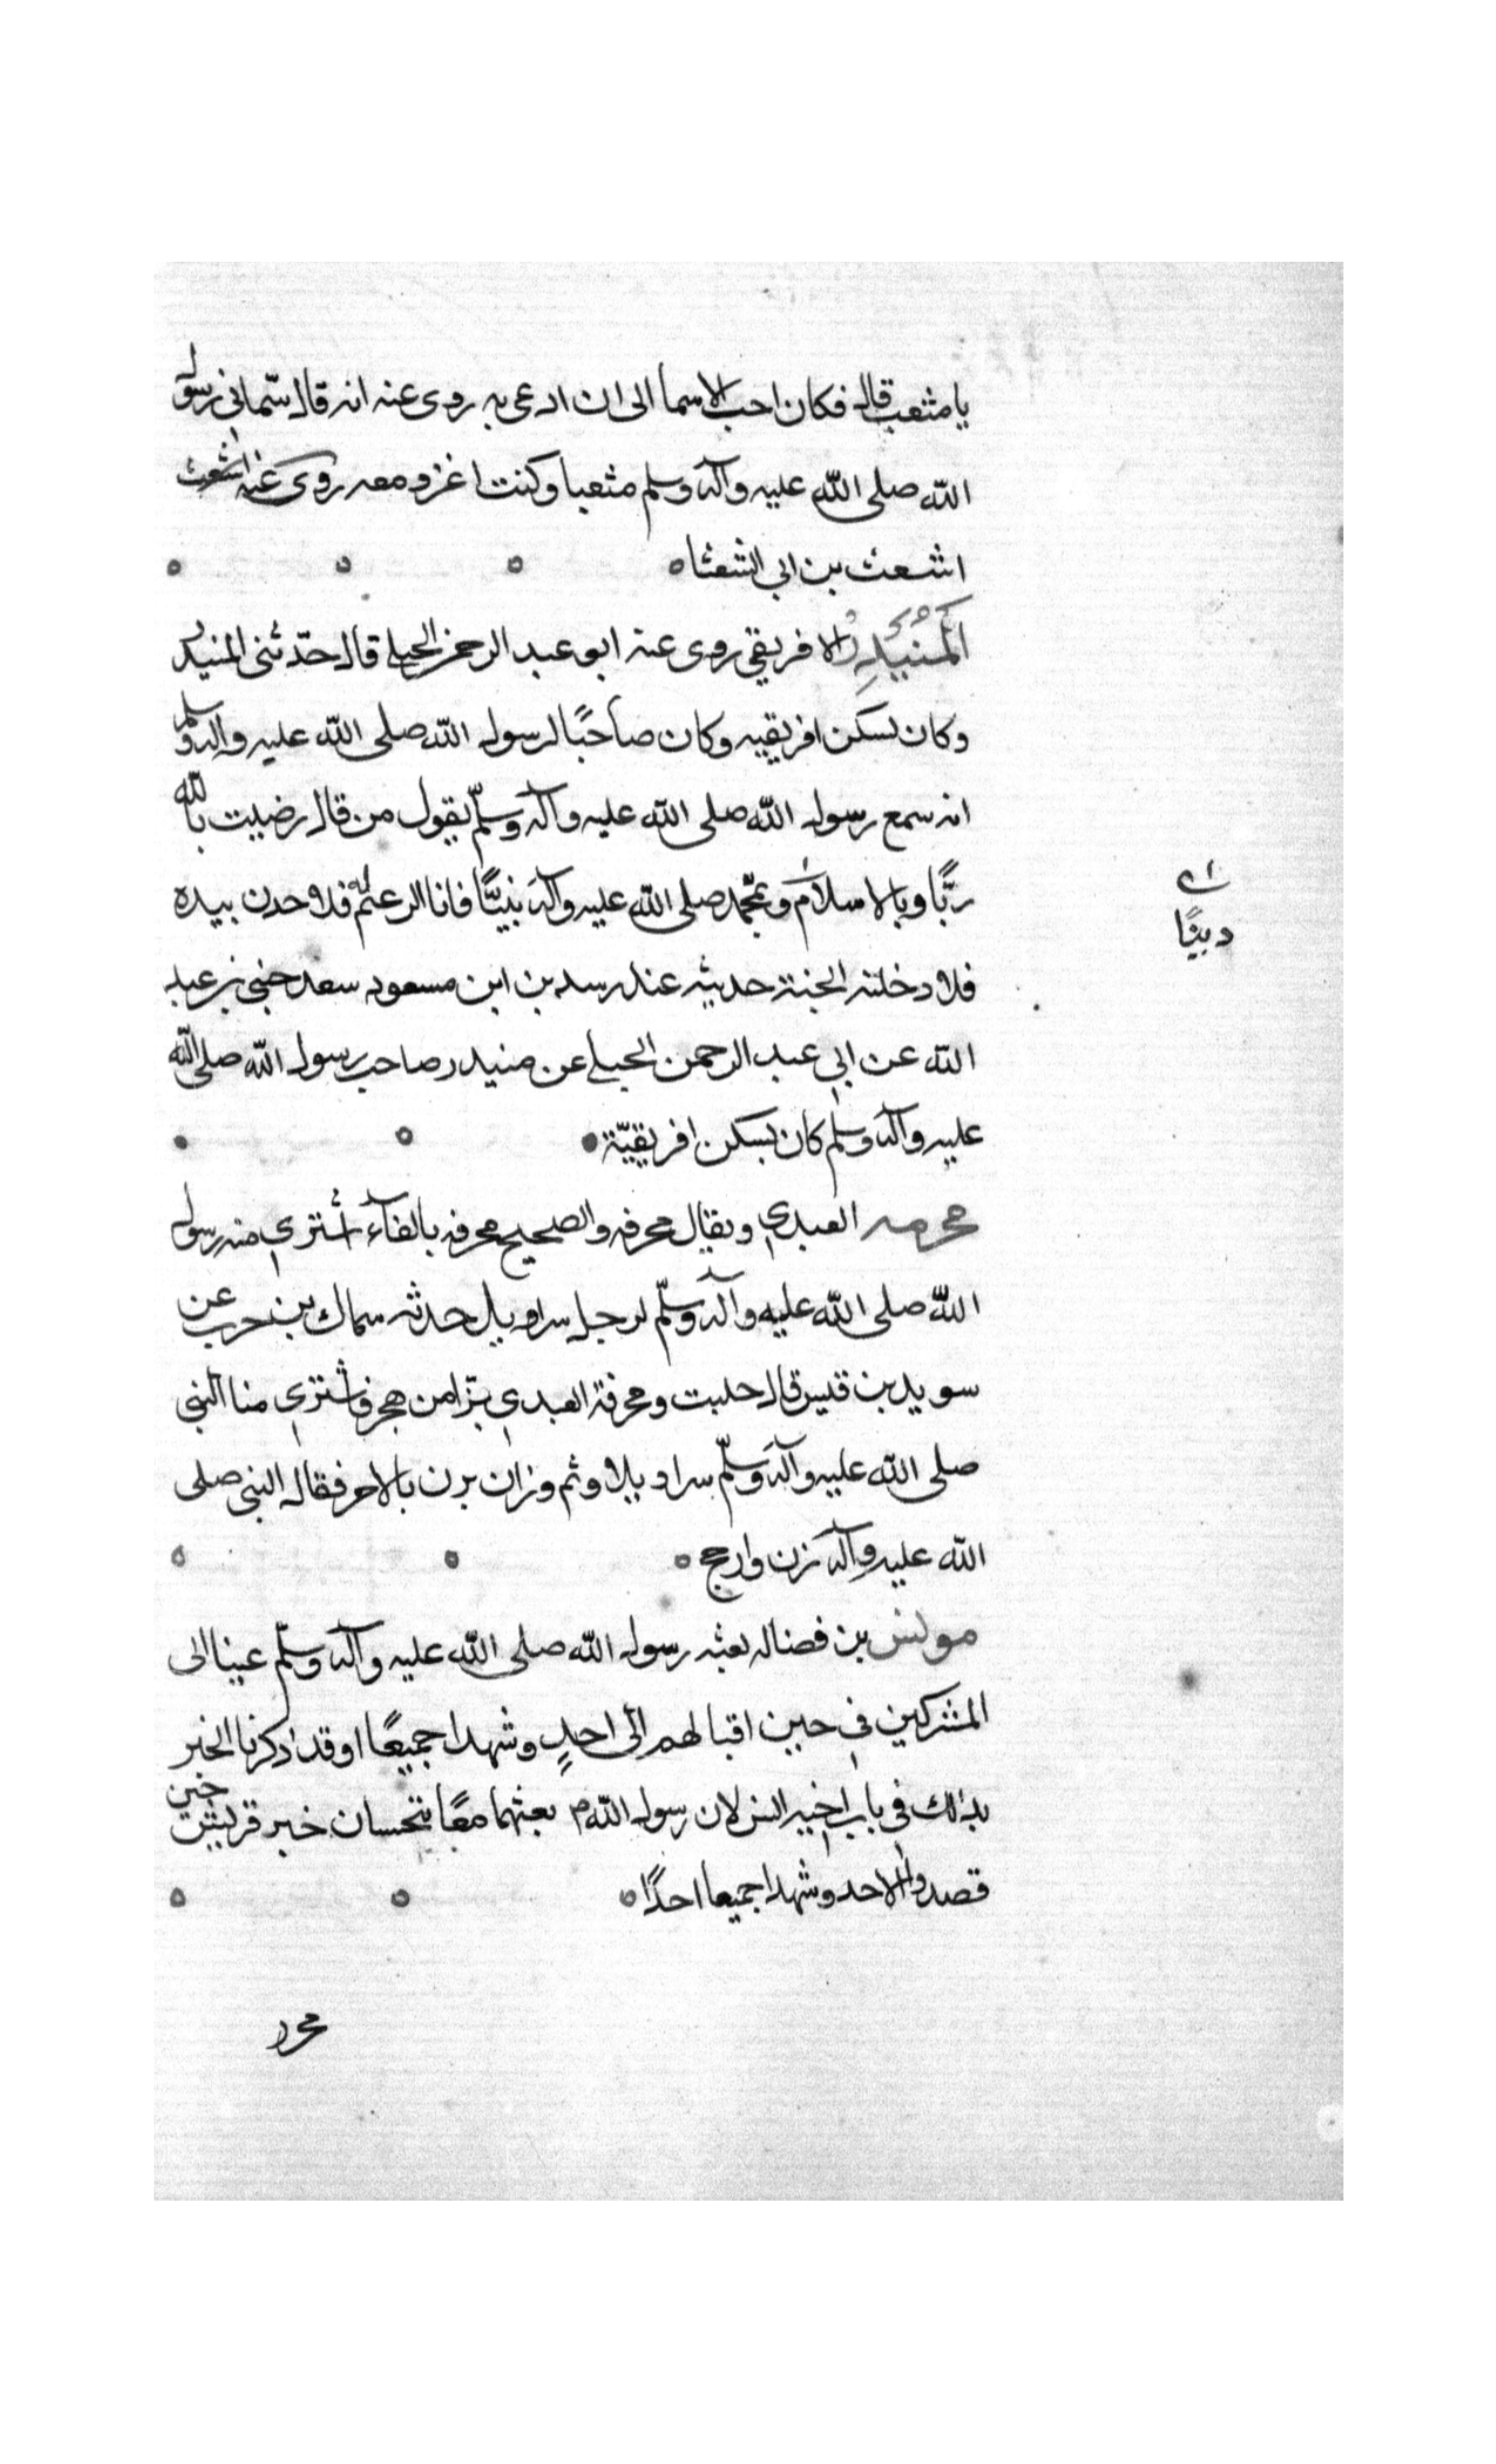 يا مثعب قال فكان احب الاسما الى ان ادعى به روى عنه انه قال سماني رسول
الله صلى الله عليه وآله وسلم مثعبا وكنت اغزو معه روى عنه اشعث
اشعث بن ابي الشعثا
المنيدر الافريقي روى عنه ابو عبد الرحمن الحبلي قال حدثنى المنيدر
وكان يسكن افريقيه وكان صاحبًا لرسول الله صلى الله عليه وآله وسلم
انه سمع رسول الله صلى الله عليه وآله وسلّم يقول من قال رضيت بالله
ربًّا وبالاسلام وبمحمد صلى الله عليه وآله نبيًّا فانا الزعيم فلاخذن بيده
دينًا
فلادخلنه الجنة حديثه عند رسد بن ابن مسعود سعد حيي بن عبد
الله عن ابي عبد الرحمن الحبلي عن منيدر صاحب رسول الله صلى الله
عليه وآله وسلم كان يسكن افريقيّة
مخرمه العبدي ويقال مخرفه والصحيح مخرفه بالفآء اشترى منه رسول
الله صلى الله عليه وآله وسلّم لرجل سراويل حدثه سماك بن حرب عن
سويد بن قيس قال جلبت ومخرفة العبدي بزا من هجر فاشترى منا النبي
صلى الله عليه وآله وسلّم سراويلا وثم وزان يزن بالاجر فقال النبي صلى
الله عليه وآله زن وارجح
مونس بن فضاله بعثه رسول الله صلى الله عليه وآله وسلّم عينا الى
المشركين في حين اقبالهم الى احدٍ وشهدا جميعًا وقد ذكرنا الخبر
بذلك في باب اخيه انس لان رسول الله م بعثهما معًا يتحسسان خبر قريش حين
قصدوا الاحد وشهدا جميعا احدًا
محرر